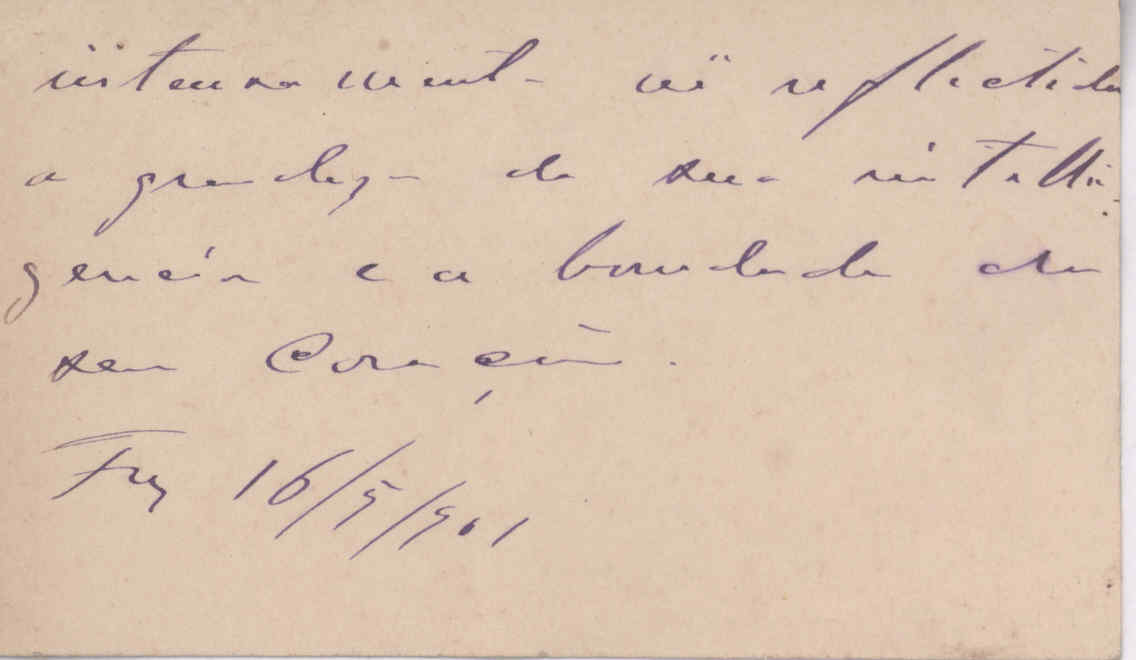 internamente vi reflectida
a grandeza da sua intelli-
gencia e a bondade do
seu Coração.
16/5/901